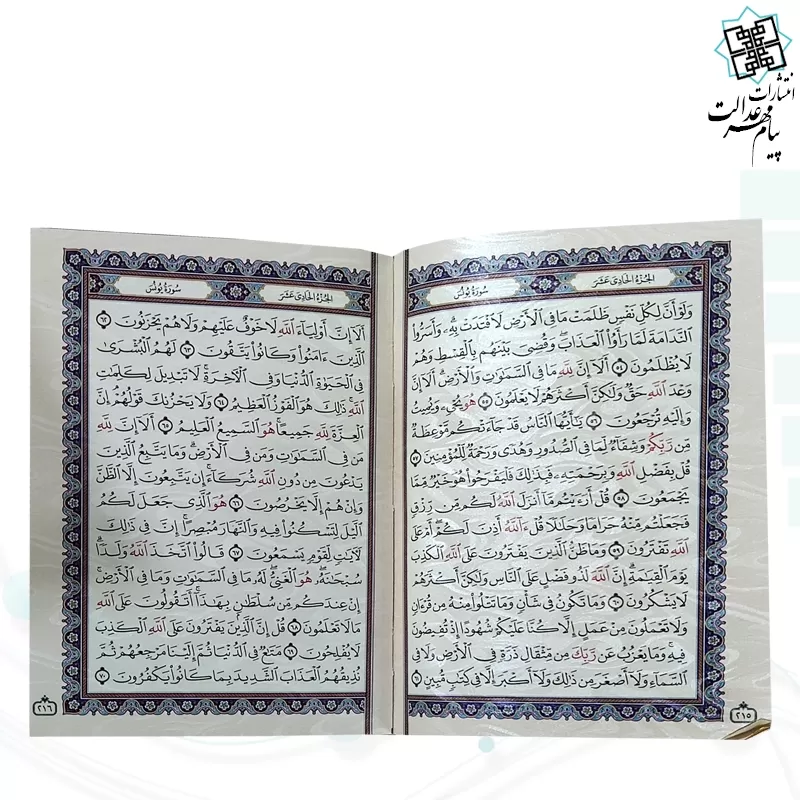 انتشارات
پیام مهر عدالت
الجُزءُ الحَادِی عَشَر
سُورَةُ یُونُس
وَلَوْ أَنَّ لِكُلِّ نَفْسٍ ظَلَمَتْ مَا فِي الْأَرْضِ لَافْتَدَتْ بِهِ ۗ وَأَسَرُّوا
النَّدَامَةَ لَمَّا رَأَوُا الْعَذَابَ ۖ وَقُضِيَ بَيْنَهُم بِالْقِسْطِ وَهُمْ
لَا يُظْلَمُونَ ﴿٥٤﴾ أَلَا إِنَّ لِلَّهِ مَا فِي السَّمَاوَاتِ وَالْأَرْضِ ۗ أَلَا إِنَّ
وَعْدَ اللَّهِ حَقٌّ وَلَٰكِنَّ أَكْثَرَهُمْ لَا يَعْلَمُونَ ﴿٥٥﴾ هُوَ يُحْيِي وَيُمِيتُ
وَإِلَيْهِ تُرْجَعُونَ ﴿٥٦﴾ يَا أَيُّهَا النَّاسُ قَدْ جَاءَتْكُم مَّوْعِظَةٌ
مِّن رَّبِّكُمْ وَشِفَاءٌ لِّمَا فِي الصُّدُورِ وَهُدًى وَرَحْمَةٌ لِّلْمُؤْمِنِينَ ﴿٥٧﴾
قُلْ بِفَضْلِ اللَّهِ وَبِرَحْمَتِهِ فَبِذَٰلِكَ فَلْيَفْرَحُوا هُوَ خَيْرٌ مِّمَّا
يَجْمَعُونَ ﴿٥٨﴾ قُلْ أَرَأَيْتُم مَّا أَنزَلَ اللَّهُ لَكُم مِّن رِّزْقٍ
فَجَعَلْتُم مِّنْهُ حَرَامًا وَحَلَالًا قُلْ آللَّهُ أَذِنَ لَكُمْ ۖ أَمْ عَلَى
اللَّهِ تَفْتَرُونَ ﴿٥٩﴾ وَمَا ظَنُّ الَّذِينَ يَفْتَرُونَ عَلَى اللَّهِ الْكَذِبَ
يَوْمَ الْقِيَامَةِ ۗ إِنَّ اللَّهَ لَذُو فَضْلٍ عَلَى النَّاسِ وَلَٰكِنَّ أَكْثَرَهُمْ
لَا يَشْكُرُونَ ﴿٦٠﴾ وَمَا تَكُونُ فِي شَأْنٍ وَمَا تَتْلُو مِنْهُ مِن قُرْآنٍ
وَلَا تَعْمَلُونَ مِنْ عَمَلٍ إِلَّا كُنَّا عَلَيْكُمْ شُهُودًا إِذْ تُفِيضُونَ
فِيهِ ۚ وَمَا يَعْزُبُ عَن رَّبِّكَ مِن مِّثْقَالِ ذَرَّةٍ فِي الْأَرْضِ وَلَا فِي
السَّمَاءِ وَلَا أَصْغَرَ مِن ذَٰلِكَ وَلَا أَكْبَرَ إِلَّا فِي كِتَابٍ مُّبِينٍ ﴿٦١﴾
٢١٥
الجُزءُ الحَادِی عَشَر
سُورَةُ یُونُس
أَلَا إِنَّ أَوْلِيَاءَ اللَّهِ لَا خَوْفٌ عَلَيْهِمْ وَلَا هُمْ يَحْزَنُونَ ﴿٦٢﴾
الَّذِينَ آمَنُوا وَكَانُوا يَتَّقُونَ ﴿٦٣﴾ لَهُمُ الْبُشْرَىٰ
فِي الْحَيَوٰةِ الدُّنْيَا وَفِي الْآخِرَةِ ۚ لَا تَبْدِيلَ لِكَلِمَاتِ
اللَّهِ ۚ ذَٰلِكَ هُوَ الْفَوْزُ الْعَظِيمُ ﴿٦٤﴾ وَلَا يَحْزُنكَ قَوْلُهُمْ ۘ إِنَّ
الْعِزَّةَ لِلَّهِ جَمِيعًا ۚ هُوَ السَّمِيعُ الْعَلِيمُ ﴿٦٥﴾ أَلَا إِنَّ لِلَّهِ
مَن فِي السَّمَاوَاتِ وَمَن فِي الْأَرْضِ ۗ وَمَا يَتَّبِعُ الَّذِينَ
يَدْعُونَ مِن دُونِ اللَّهِ شُرَكَاءَ ۚ إِن يَتَّبِعُونَ إِلَّا الظَّنَّ
وَإِنْ هُمْ إِلَّا يَخْرُصُونَ ﴿٦٦﴾ هُوَ الَّذِي جَعَلَ لَكُمُ
اللَّيْلَ لِتَسْكُنُوا فِيهِ وَالنَّهَارَ مُبْصِرًا ۚ إِنَّ فِي ذَٰلِكَ
لَآيَاتٍ لِّقَوْمٍ يَسْمَعُونَ ﴿٦٧﴾ قَالُوا اتَّخَذَ اللَّهُ وَلَدًا ۗ
سُبْحَانَهُ ۖ هُوَ الْغَنِيُّ ۖ لَهُ مَا فِي السَّمَاوَاتِ وَمَا فِي الْأَرْضِ ۚ
إِنْ عِندَكُم مِّن سُلْطَانٍ بِهَٰذَا ۚ أَتَقُولُونَ عَلَى اللَّهِ
مَا لَا تَعْلَمُونَ ﴿٦٨﴾ قُلْ إِنَّ الَّذِينَ يَفْتَرُونَ عَلَى اللَّهِ الْكَذِبَ
لَا يُفْلِحُونَ ﴿٦٩﴾ مَتَاعٌ فِي الدُّنْيَا ثُمَّ إِلَيْنَا مَرْجِعُهُمْ ثُمَّ
نُذِيقُهُمُ الْعَذَابَ الشَّدِيدَ بِمَا كَانُوا يَكْفُرُونَ ﴿٧٠﴾
٢١٦